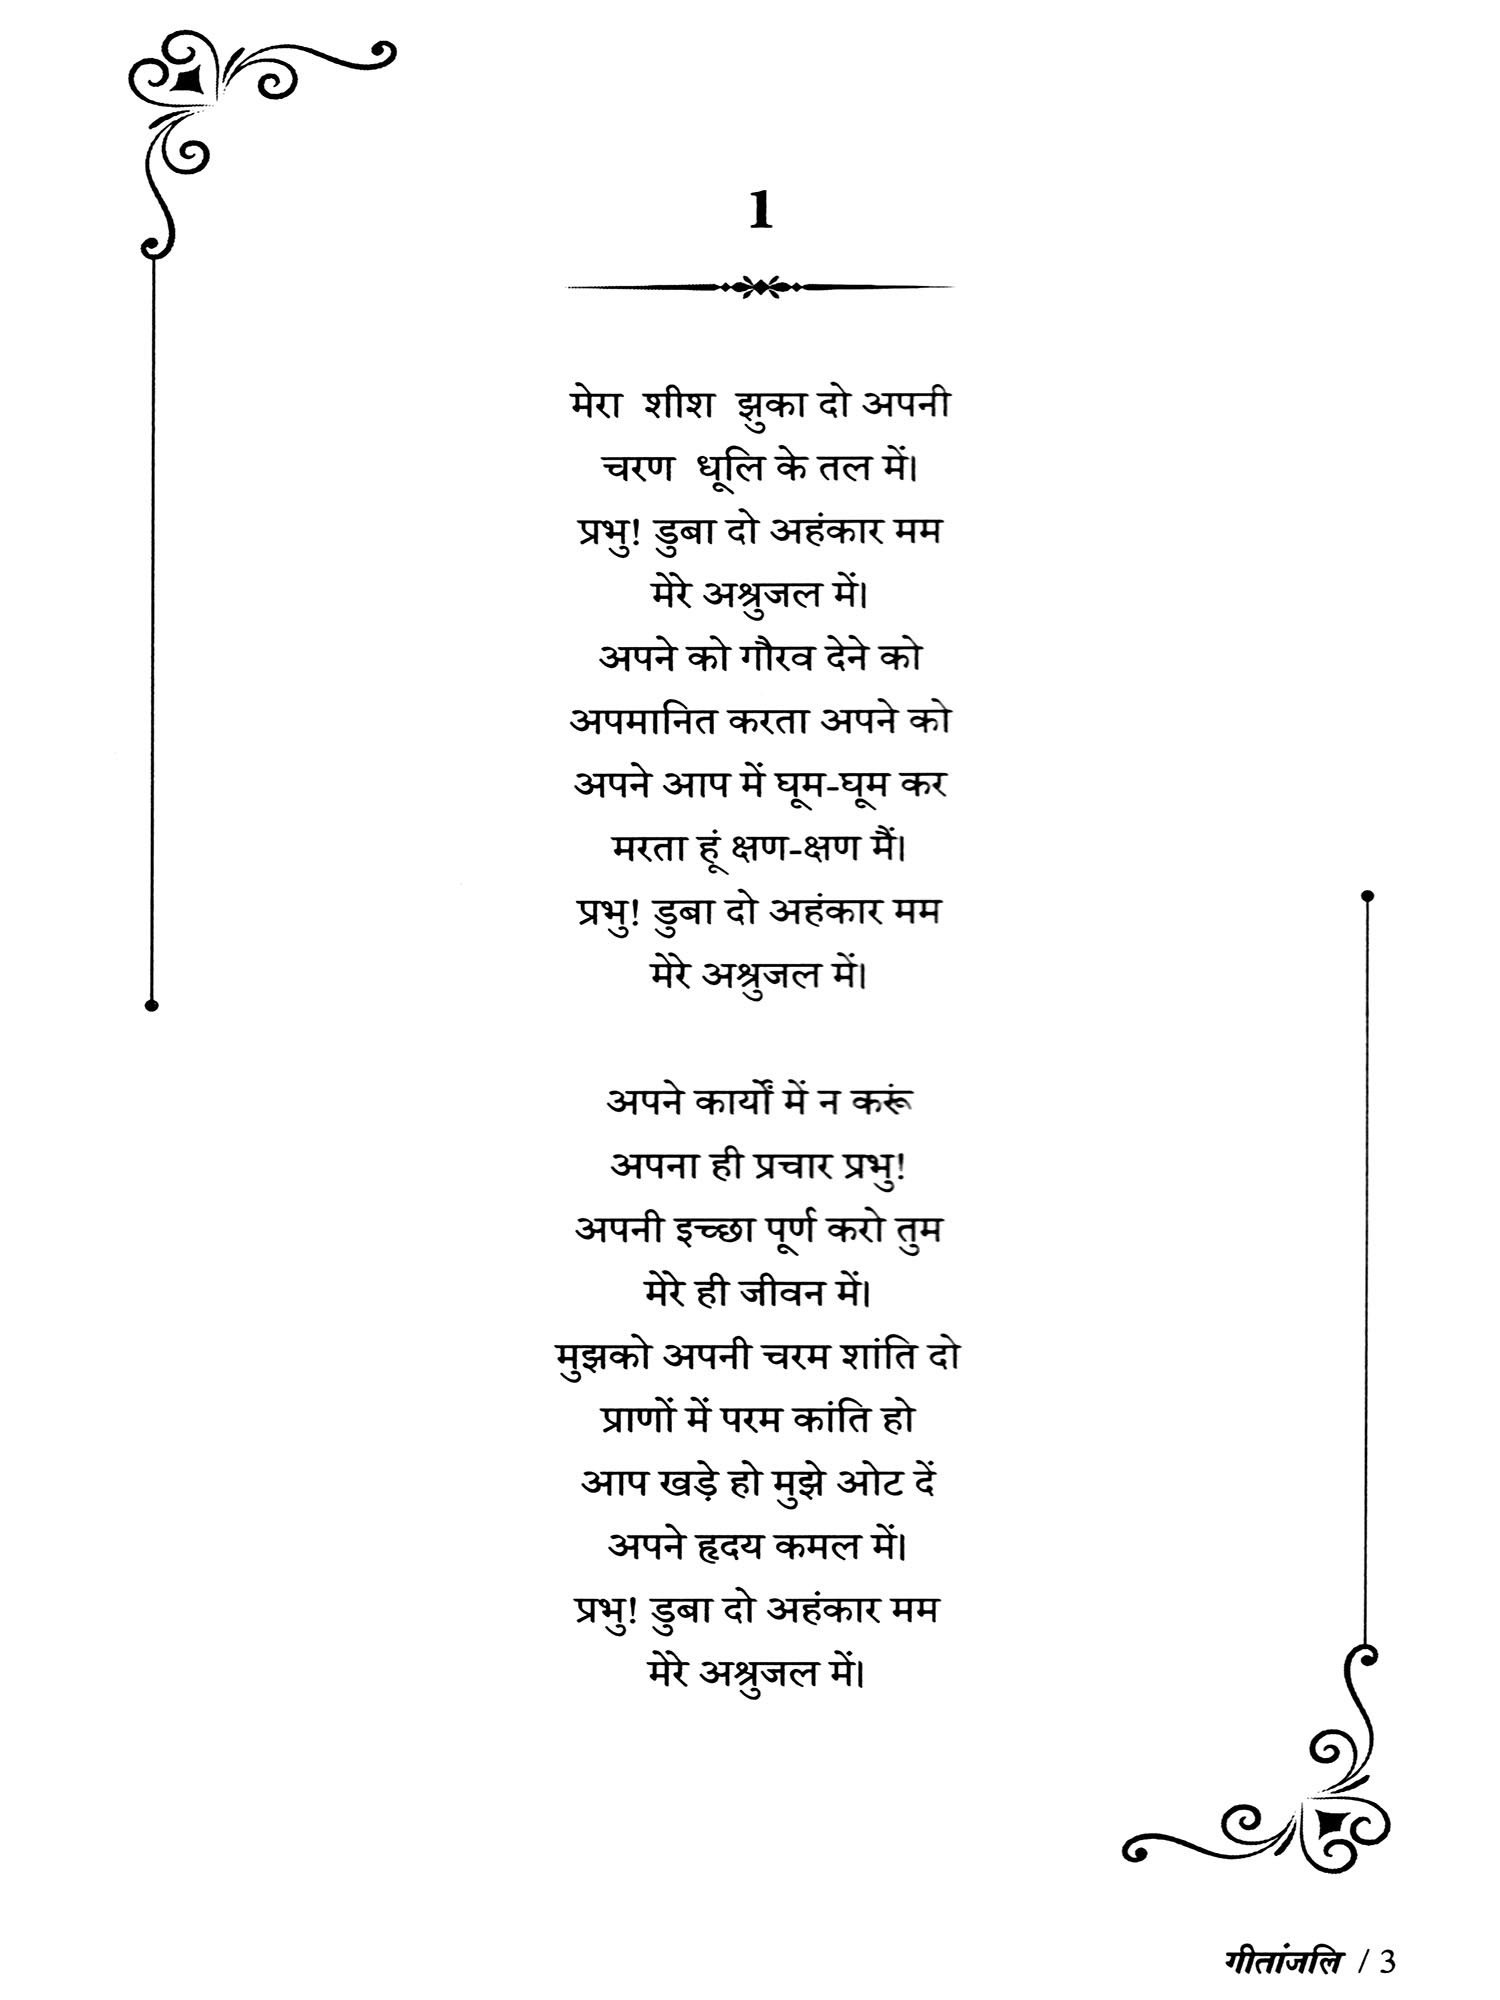 1
मेरा शीश झुका दो अपनी
चरण धूलि के तल में।
प्रभु! डुबा दो अहंकार मम
मेरे अश्रुजल में।
अपने को गौरव देने को
अपमानित करता अपने को
अपने आप में घूम-घूम कर
मरता हूं क्षण-क्षण मैं।
प्रभु! डुबा दो अहंकार मम
मेरे अश्रुजल में।
अपने कार्यों में न करूं
अपना ही प्रचार प्रभु!
अपनी इच्छा पूर्ण करो तुम
मेरे ही जीवन में।
मुझको अपनी चरम शांति दो
प्राणों में परम कांति हो
आप खड़े हो मुझे ओट दें
अपने हृदय कमल में।
प्रभु! डुबा दो अहंकार मम
मेरे अश्रुजल में।
गीतांजलि / 3